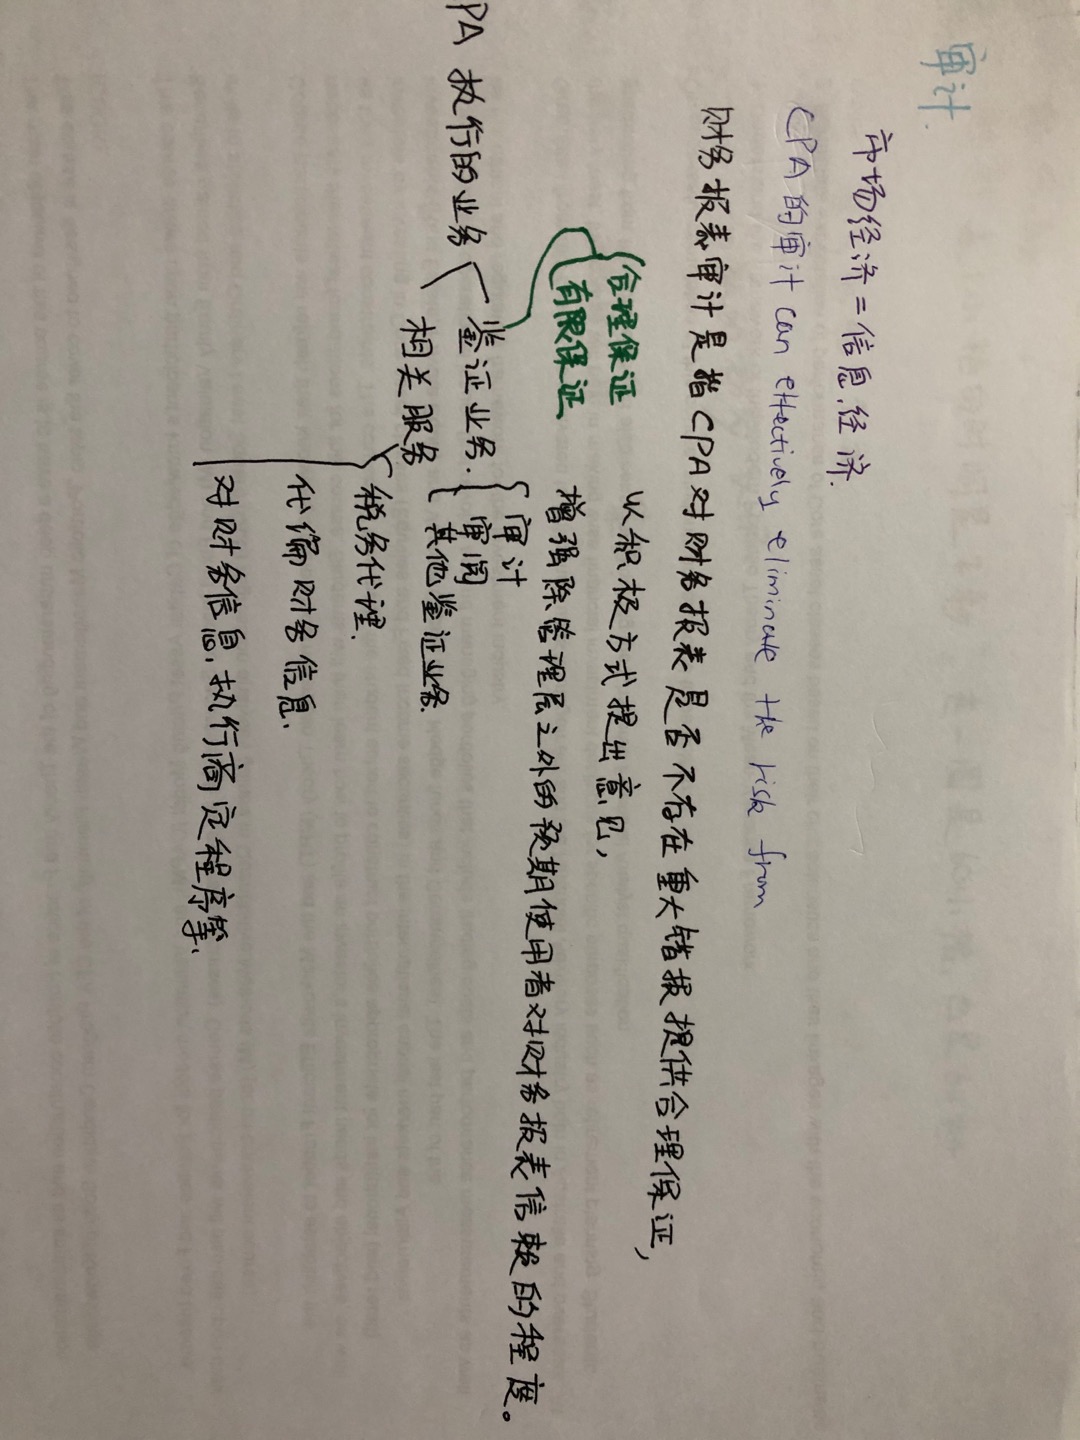 审计.
市场经济=信息经济.
CPA的审计 can effectively eliminate the risk from
财务报表审计是指CPA对财务报表是否不存在重大错报提供合理保证,
以积极方式提出意见,
增强除管理层之外的预期使用者对财务报表信赖的程度。
合理保证
有限保证
PA 执行的业务
鉴证业务.
审计
审阅
其他鉴证业务.
相关服务
税务代理.
代编财务信息.
对财务信息.执行商定程序等.